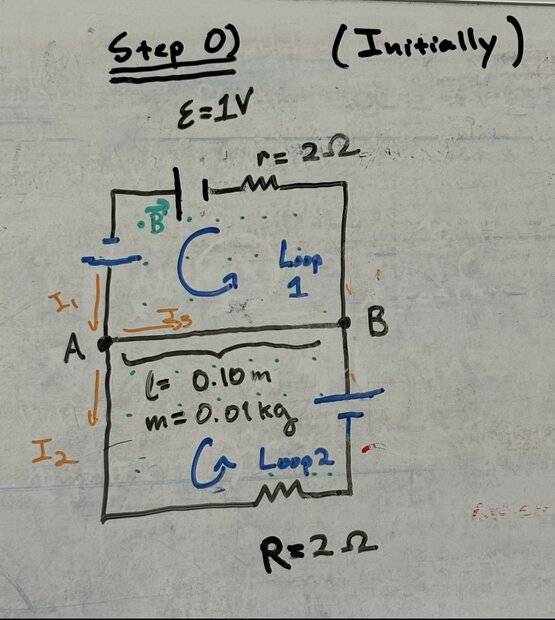 Step 0) (Initially)
ε=1V
r= 2Ω
B
Loop
1
I₁
I₃
A
B
l= 0.10m
m=0.01kg
I2
Loop2
R=2Ω